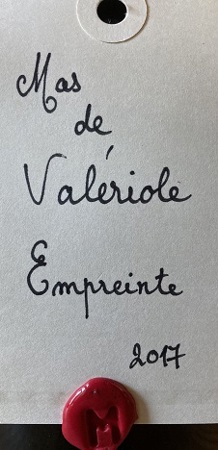 Mas
de
Valériole
Empreinte
2017
M